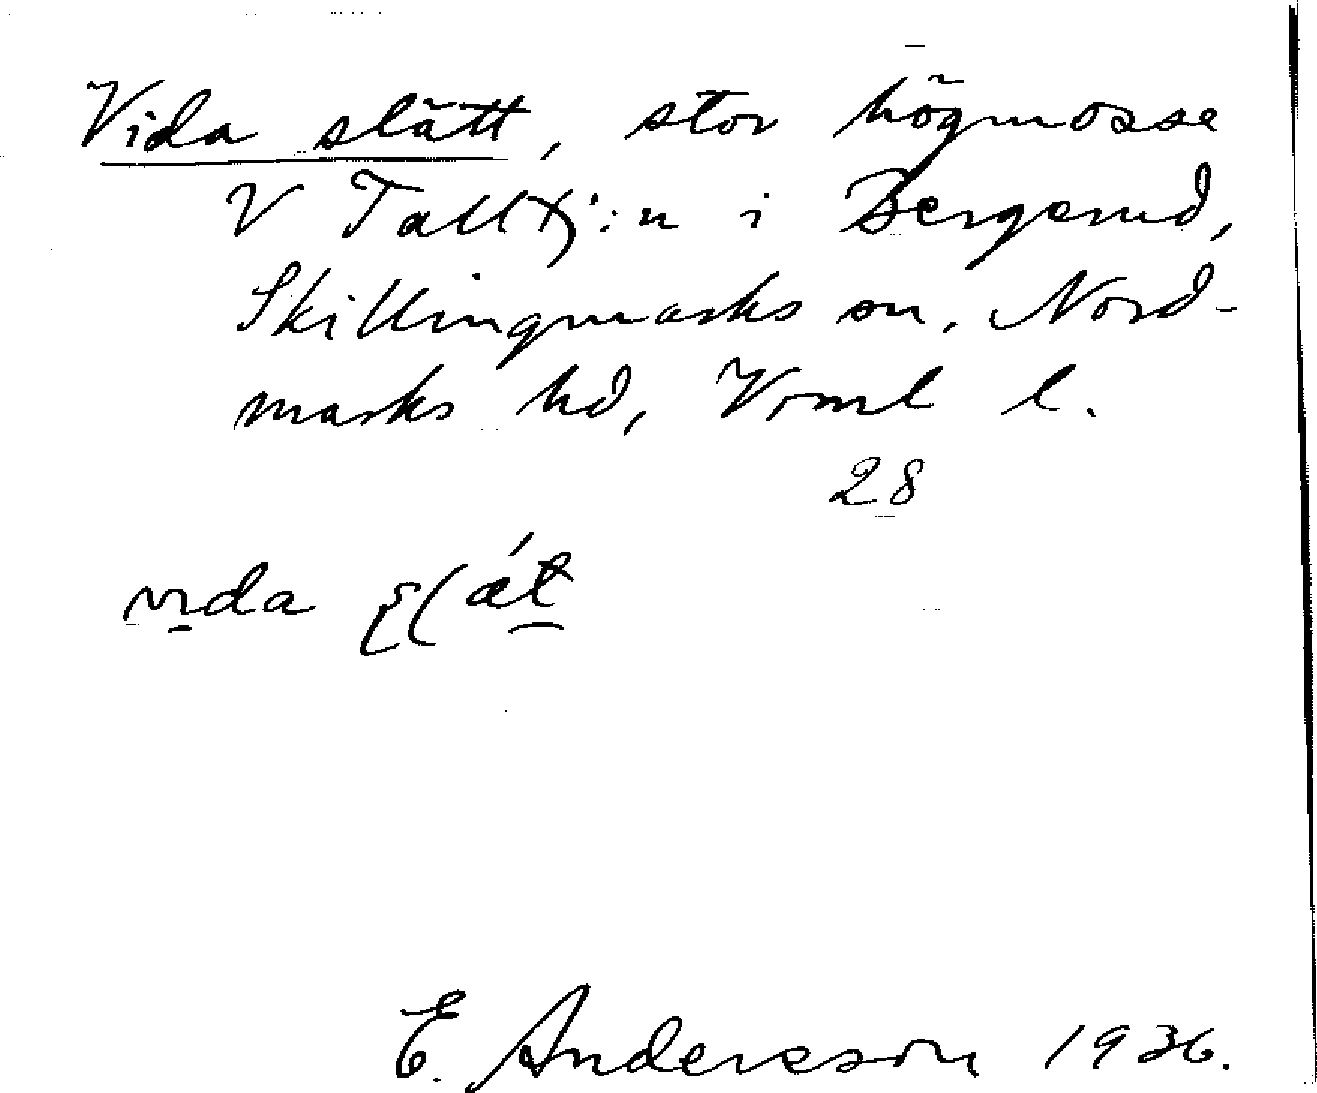 Vida slätt, stor högmosse
V Talltj:n i Bergerud,
Skillingmarks sn, Nord-
marks hd, Vrml l.
28
vida
E. Andersson 1936.